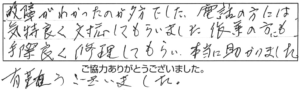 故障がわかったのが夕方でした。電話の方には
気持良く対応してもらいました 作業の方も
手際良く修理してもらい、本当に助かりました
ご協力ありがとうございました。
有難うございました。